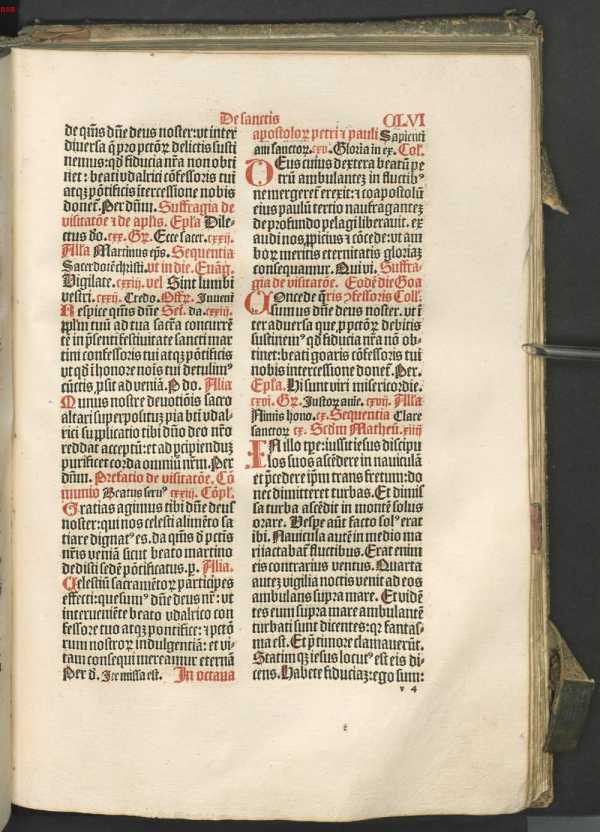 De sanctis
CLVI
de qm̄s dn̄e deus noster: vt inter
diuersa q̄ pro pctōꝝ delictis susti
nemus: qd̓ fiducia nr̄a non obti
net: beati vdalrici cōfessoris tui
atqꝫ pōtificis itercessione nobis
donet̄. Per dn̄m. Suffragia de
visitatōe ⁊ de aplis. Epl̄a Dile-
ctus do. cxx. Gr̄. Ecce sacer. cxxij.
Al̄la Martinus ep̄s. Sequentia
Sacerdotē christi. vt in die. Euāg̓.
Vigilate. cxxiij. vel Sint lumbi
vestri. cxxij. Credo. Off̄r. Inueni
Respice qm̄s dn̄e Sec. da. cxxiij.
ppl̄m tuū ad tua sacra concurrē
tē in p̄senti festiuitate sancti mar
tini confessoris tui atqꝫ pōtificis
vt qd̓ i honore nois tui detulim⁹
cūctis ꝓsit ad veniā. P do. Alia
Munus nostre deuotiōis sacro
altari superpositūz pia bt̄i vdal-
rici supplicatio tibi dn̄o deo nr̄o
reddat acceptū: et ad p̄cipienduz
purificet corda omniū nr̄m. Per
dn̄m. Prefatio de visitatōe. Cō
munio Beatus seru⁹ cxxiij. Cōpl̄.
Gratias agimus tibi dn̄e deus
noster: qui nos celesti alimēto sa
tiare dignat⁹ es. da qm̄s ꝓ pctīs
nr̄is veniā sicut beato martino
dedisti sedē pōtificatus. p. Alia.
Celestiū sacramētoꝝ participes
effecti: quesum⁹ dn̄e deus nr̄: vt
interueniēte beato vdalrico con
fessore tuo atqꝫ pontifice: ⁊ pctō
rum nostroꝝ indulgentiā: et vi-
tam consequi mereamur eternā
Per d. Ite missa est. In octaua
apostoloꝝ petri ⁊ pauli Sapienti
am sanctoꝝ. cxv. Gloria in ex. Col̄.
DEus cuius dextera beatū pe
trū ambulantez in fluctib⁹
ne mergeret̄ erexit: ⁊ coapostolū
eius paulū tertio naufragantez
de profundo pelagi liberauit. ex
audi nos ꝓpicius ⁊ cōcede: vt am
boꝝ meritis eternitatis gloriaz
consequamur. Qui vi. Suffra-
gia de visitatōe. Eodē die Goa
Concede q̄ris ꝯfessoris Coll̄.
sumus dn̄e deus noster. vt i
ter aduersa que ꝓ pctōꝝ debitis
sustinem⁹ qd̓ fiducia nr̄a nō ob-
tinet: beati goaris cōfessoris tui
nobis intercessione donet̄. Per.
Epl̄a. Hi sunt viri misericordie.
cxvi. Gr̄. Iustoꝝ anie. cxvij. Al̄la
Nimis hono. cx. Sequentia Clare
sanctoꝝ cx. Scd̄m Matheū. xiiij
IN illo tp̄e: iussit iesus discipu
los suos ascēdere in nauiculā
et p̄cedere ip̄m trans fretum: do
nec dimitteret turbas. Et dimis
sa turba ascēdit in montē solus
orare. Vespe aūt facto sol⁹ erat
ibi. Nauicula autē in medio ma
ri iactabat̄ fluctibus. Erat enim
eis contrarius ventus. Quarta
autez vigilia noctis venit ad eos
ambulans supra mare. Et vidē
tes eum supra mare ambulantē
turbati sunt dicentes: qꝛ fantas-
ma est. Et p̄ timore clamauerūt.
Statimqꝫ iesus locut⁹ est eis di
cens. Habete fiduciaꝫ: ego sum:
v 4